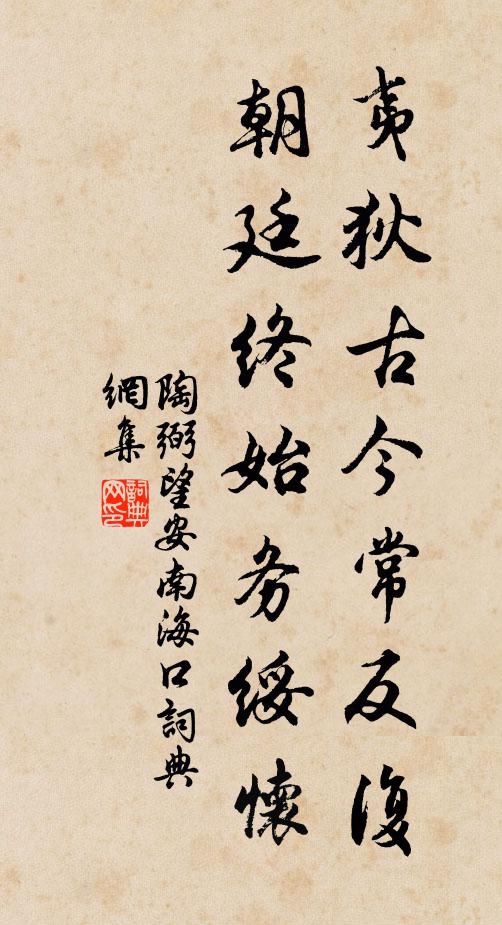 夷狄古今常反復
朝廷終始务綏懷
陶弼望安南海口詞典
網集
詞典
网印